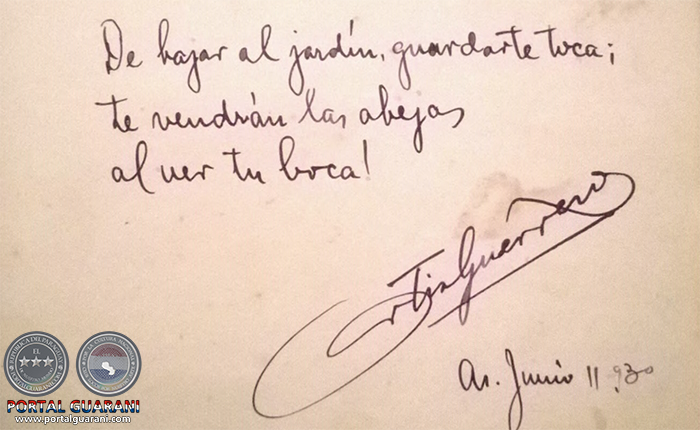 De bajar al jardín, guardarte toca;
te vendrán las abejas
al ver tu boca!
Ortiz Guerrero
As. Junio 11.930
REPUBLICA DEL PARAGUAY
EL
PORTAL GUARANI
www.portalguarani.com